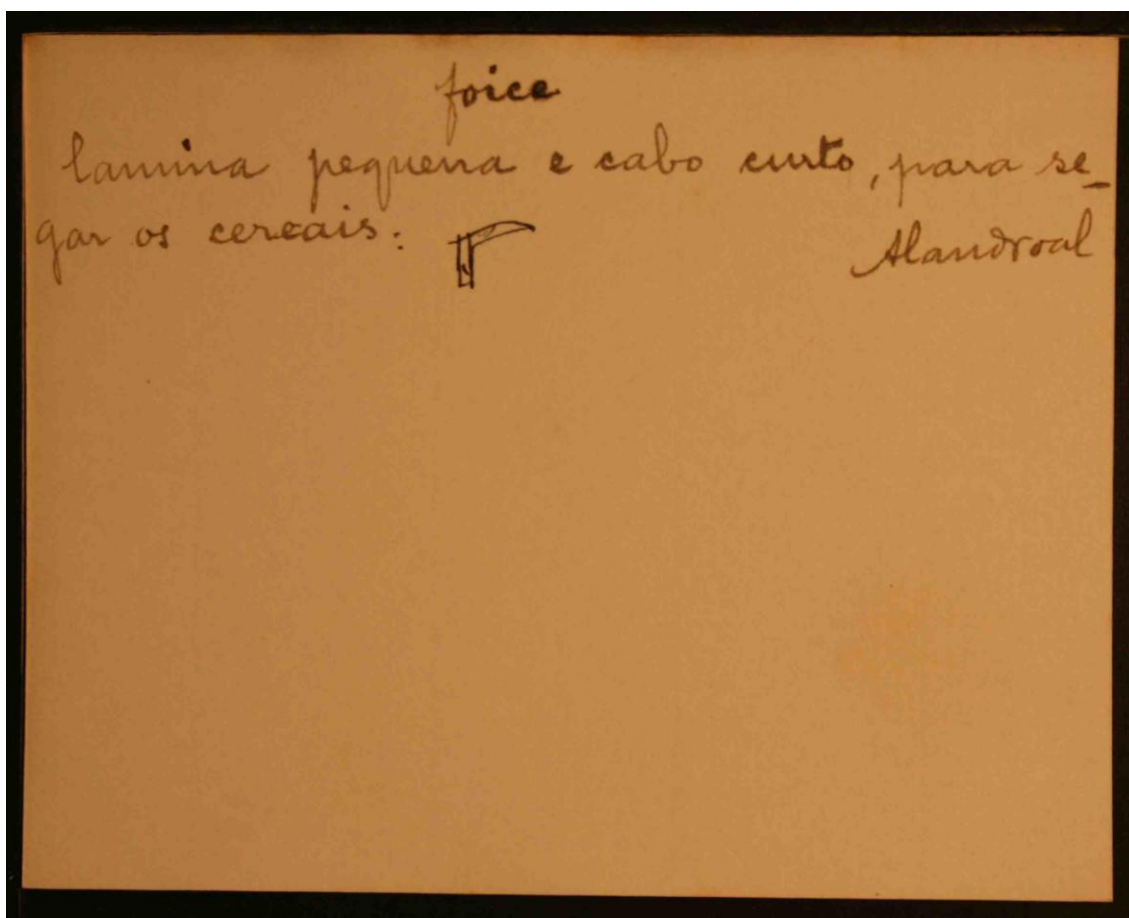 foice
lamina pequena e cabo curto, para se-
gar os cereais:
Alandroal